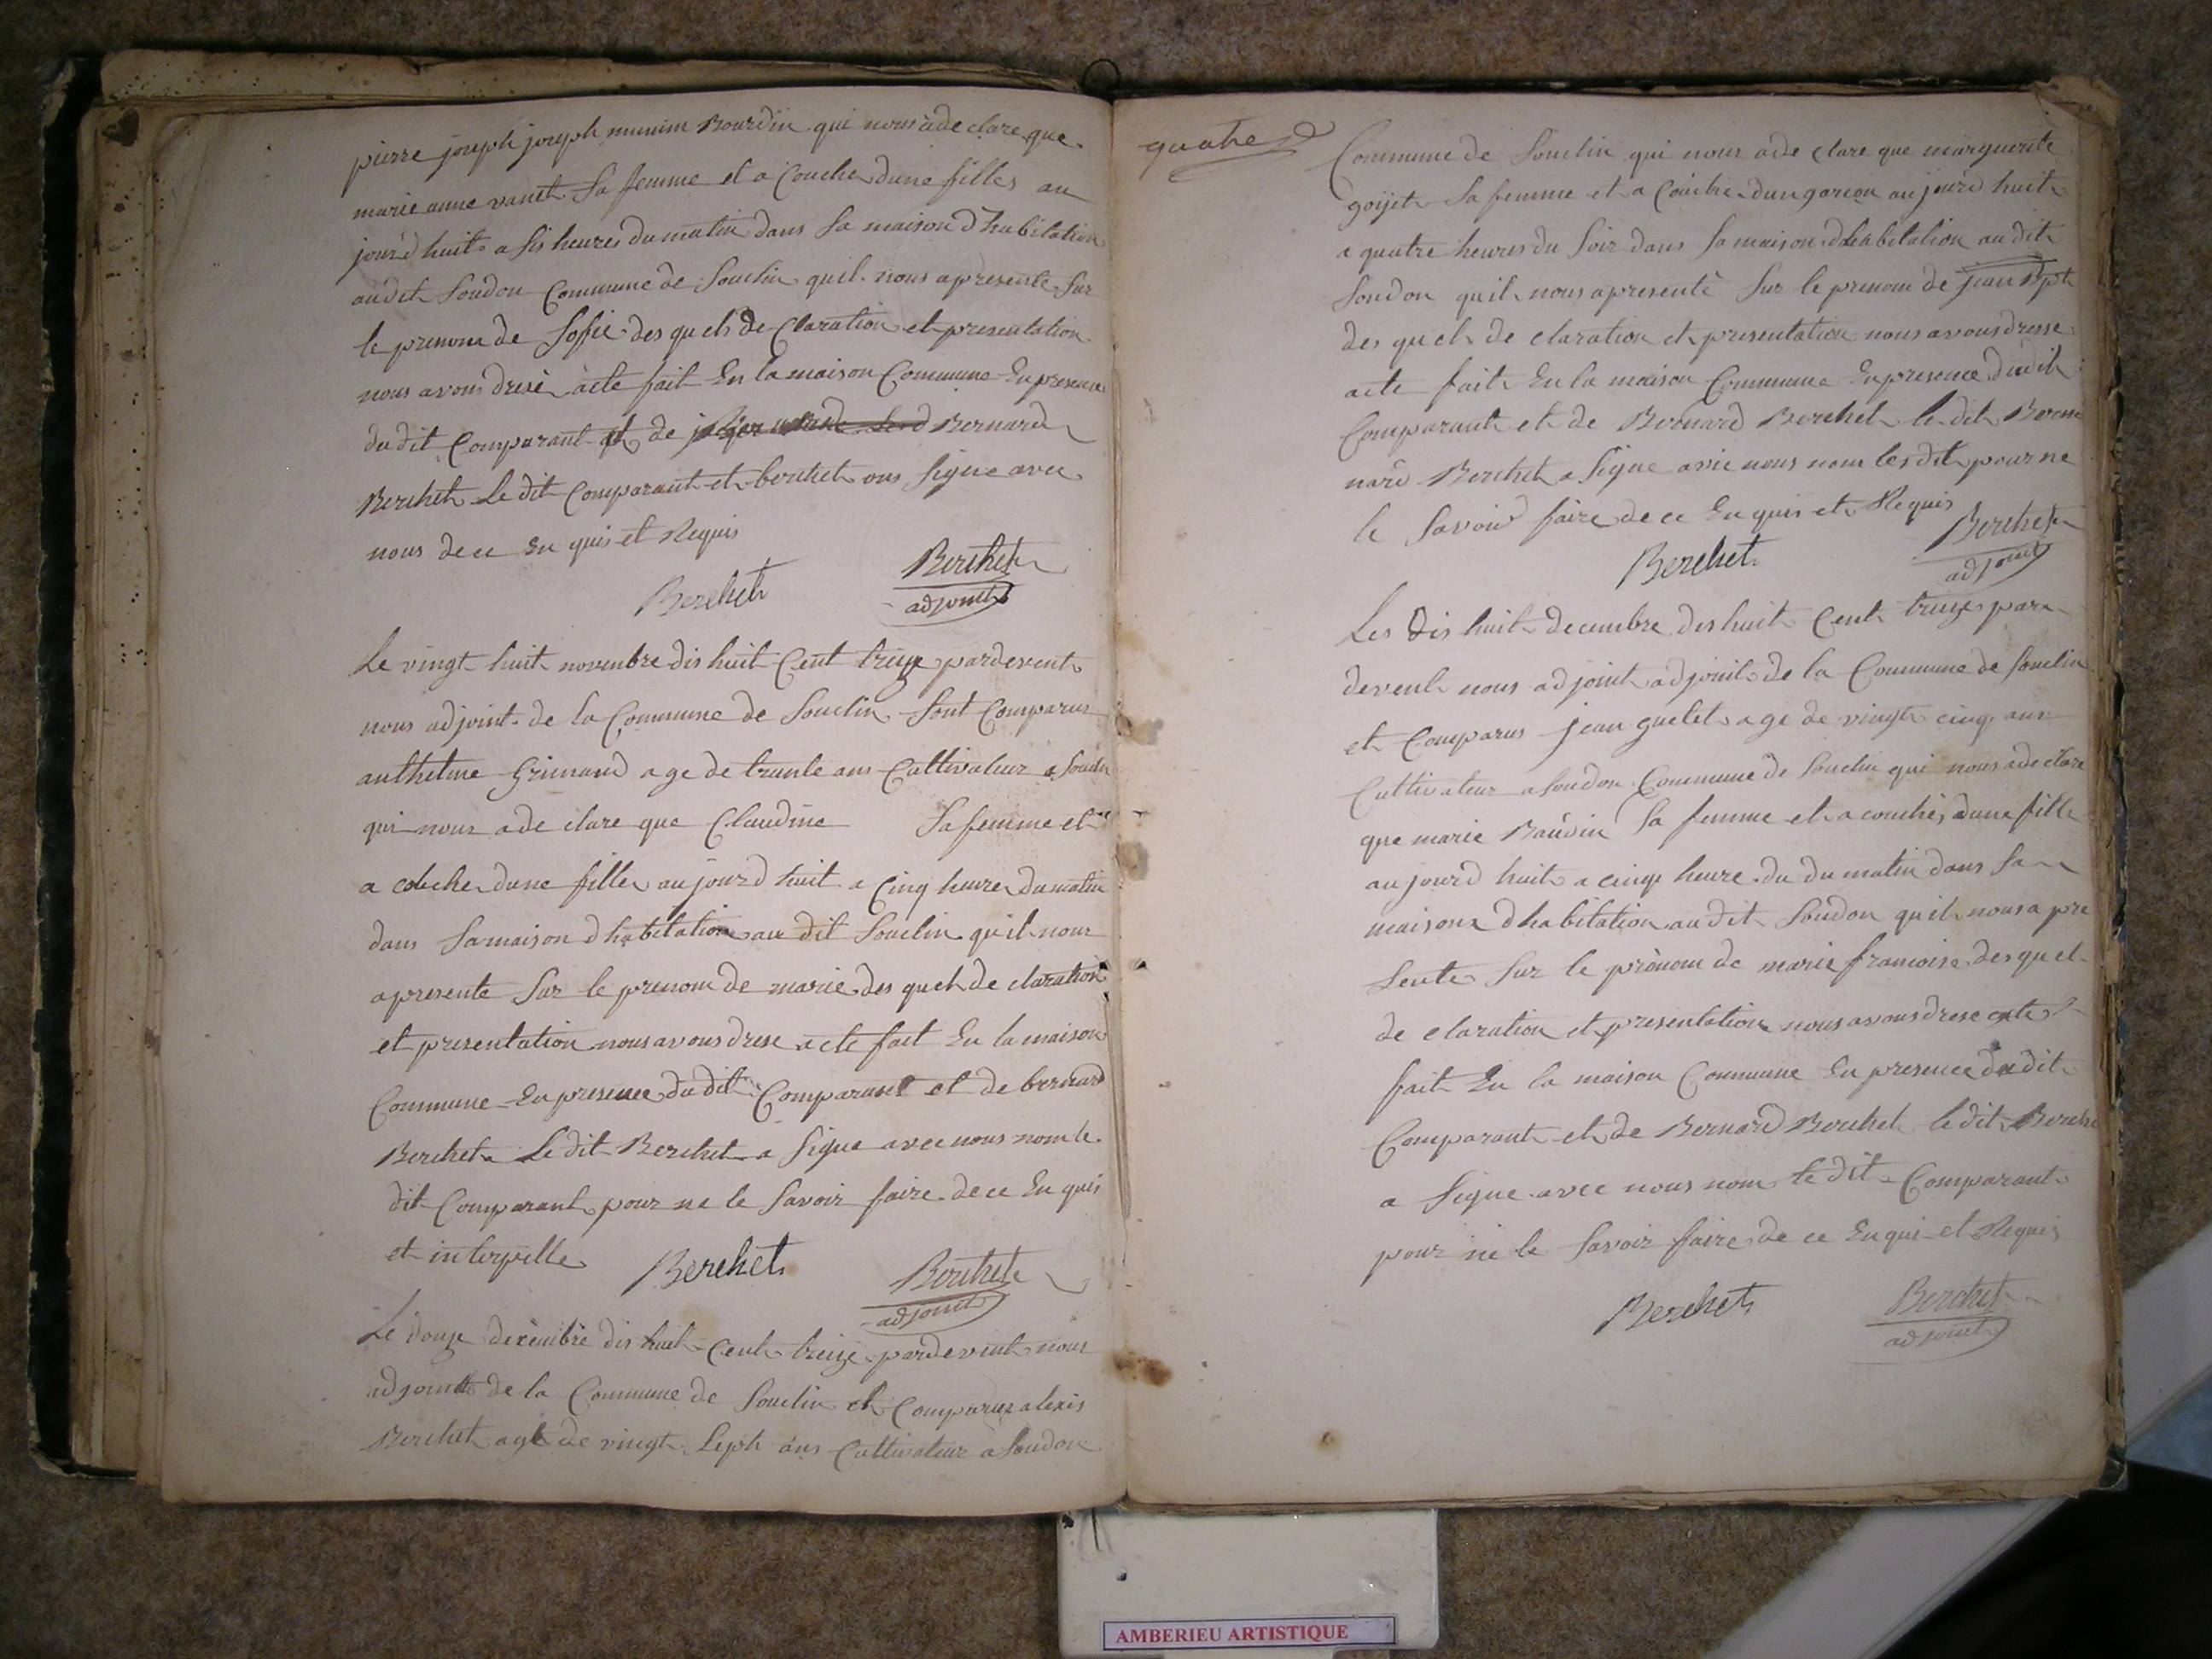 pierre joseph joseph munim Bourdin qui nous à de clare que
marie anne vanet sa femme et a Couche dune filles au
jourd huit a sis heures du matin dans sa maison d habitation
audit Soudon Commune de Souclin quil nous apresente sur
le prenom de Soffie des quels de Claration et presentation
nous avons dresè àcte fait En la maison Commune En presence
du dit Comparant et de Bernard
Berchet Le dit Comparant et berchet ons signe avec
nous de ce En quis et Requis
Berchet Berthet
adjoint
Le vingt huit novenbre dis huit Cent treize pardevent
nous adjoint de la Commune de Souclin sont Comparus
anthelme Grimand age de trante ans Cultivateur a Souclin
qui nous a de clare que Claudine sa femme et
a coucher dune filler au jourd huit a Cinq heures du matin
dans sa maison d habitation au dit Souclin quil nous
apresente sur le prenom de marie des quels de claration
et presentation nous avons drese acte fait En la maison
Commune En presence du dit Comparant et de bernard
Berchet Le dit Berchet a signe avec nous nom le
dit Comparant pour ne le savoir faire de ce En quis
et interpelle Berchet Berthet
adjoint
Le douze decembre dis huit Cent treize pardevent nous
adjoint de la Commune de Souclin et Comparus alexis
Berchet agé de vingt sept ans Cultivateur a Soudon
quatre
Commune de Souclin qui nous a de clare que marguerite
goijet sa femme et a Couche dun garcon au jourd huit
a quatre heures du soir dans sa maison dhabitation au dit
Soudon quil nous apresente sur le prenom de jean Bpt
des quels de claration et presentation nous avons dresse
acte fait En la maison Commune En presence du dit
Comparant et de Bernard Berchet le dit Ber
nard Berchet a signe avec nous nom les dit pour ne
le savoir faire de ce En quis et Requis
Berchet Berthet
adjoint
Les Dis huit decembre dis huit Cent treize par
devent nous adjoint adjoint de la Commune de Souclin
et Comparus jean guelet age de vingt cinq ans
Cultivateur a Soudon Commune de Souclin qui nous a de clare
que marie Baudin sa femme et a couche dune fille
au jourd huit a cinq heure du du matin dans sa
maison dhabitation au dit Soudon quil nous a pre
sente sur le prenom de marie francoise des quel
de claration et presentation nous avons drese acte
fait En la maison Commune En presence du dit
Comparant et de Bernard Berchet le dit Berche
a signe avec nous nom le dit Comparant
pour ne le savoir faire de ce En qui et Requis
Berchet Berthet
adjoint
AMBERIEU ARTISTIQUE